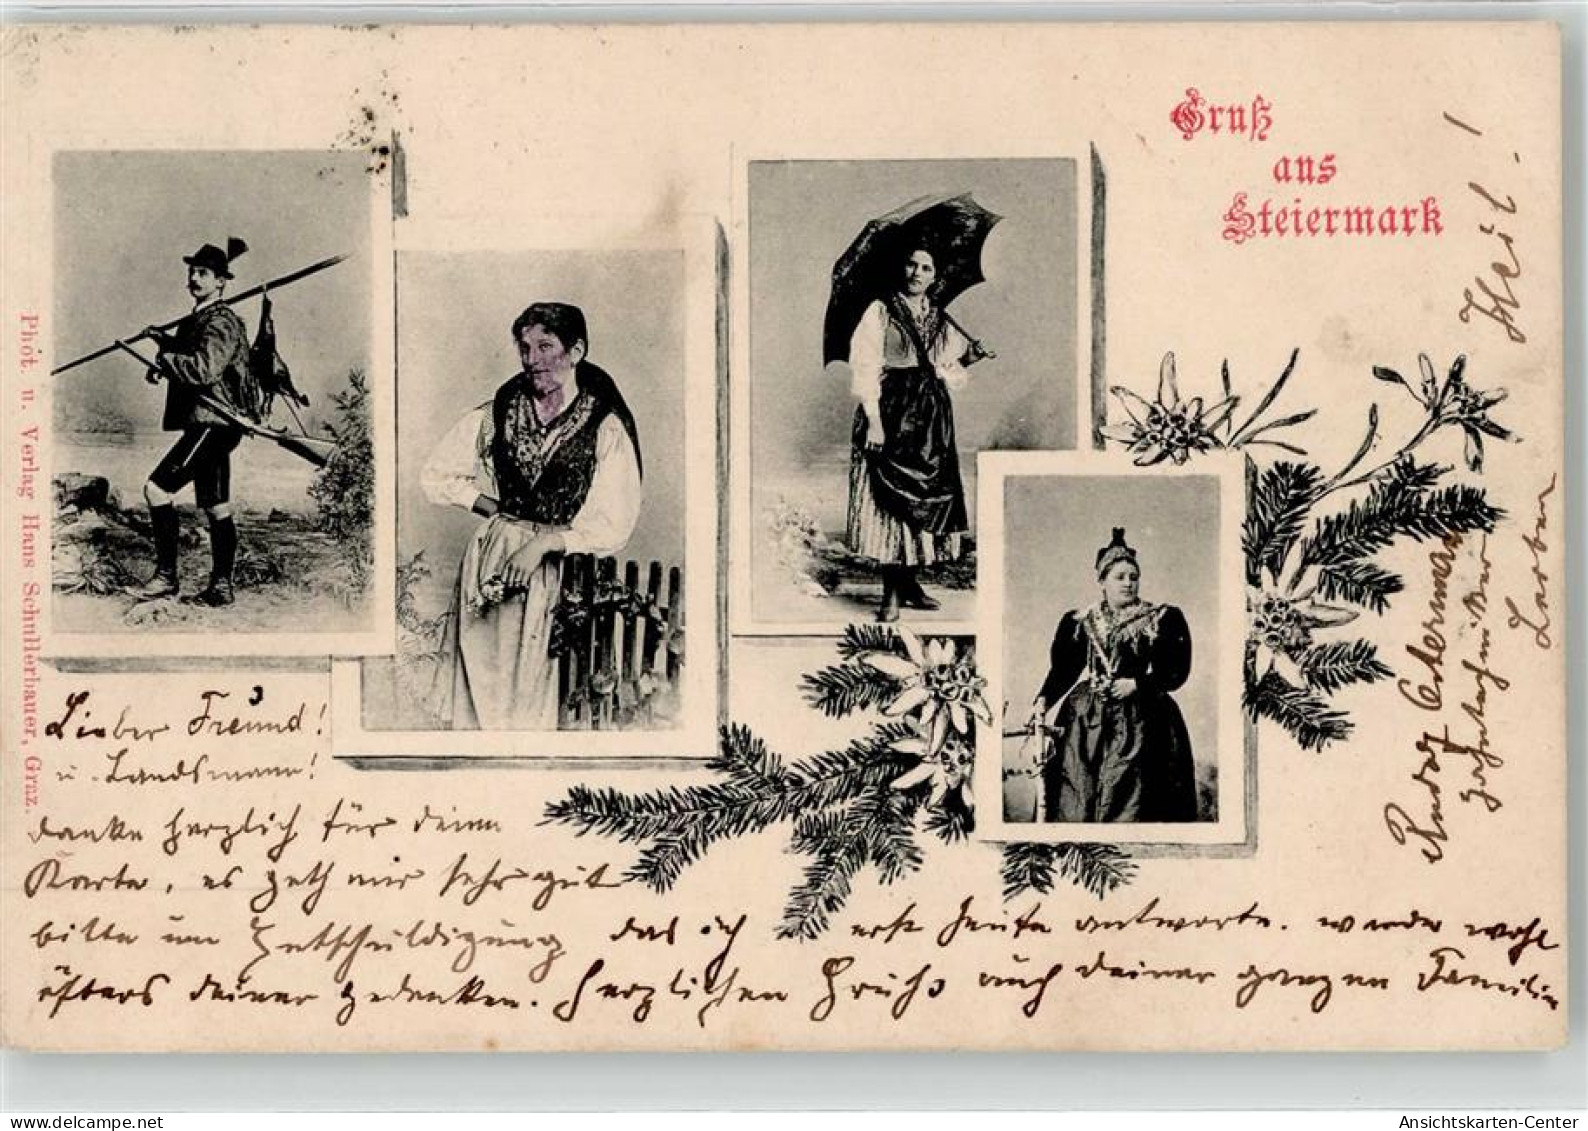 Gruß
aus
Steiermark
Phot. u. Verlag Hans Schullerbauer, Graz.
Lieber Freund!
u. Landsmann!
danke herzlich für deine
Karte, es geht mir sehr gut
bitte um Entschuldigung das ich erst heute antworte. werde wohl
öfters deiner gedenken. Herzlichen Gruß auch deiner ganzen Familie
Heil!
Leoben
www.delcampe.net
Ansichtskarten-Center